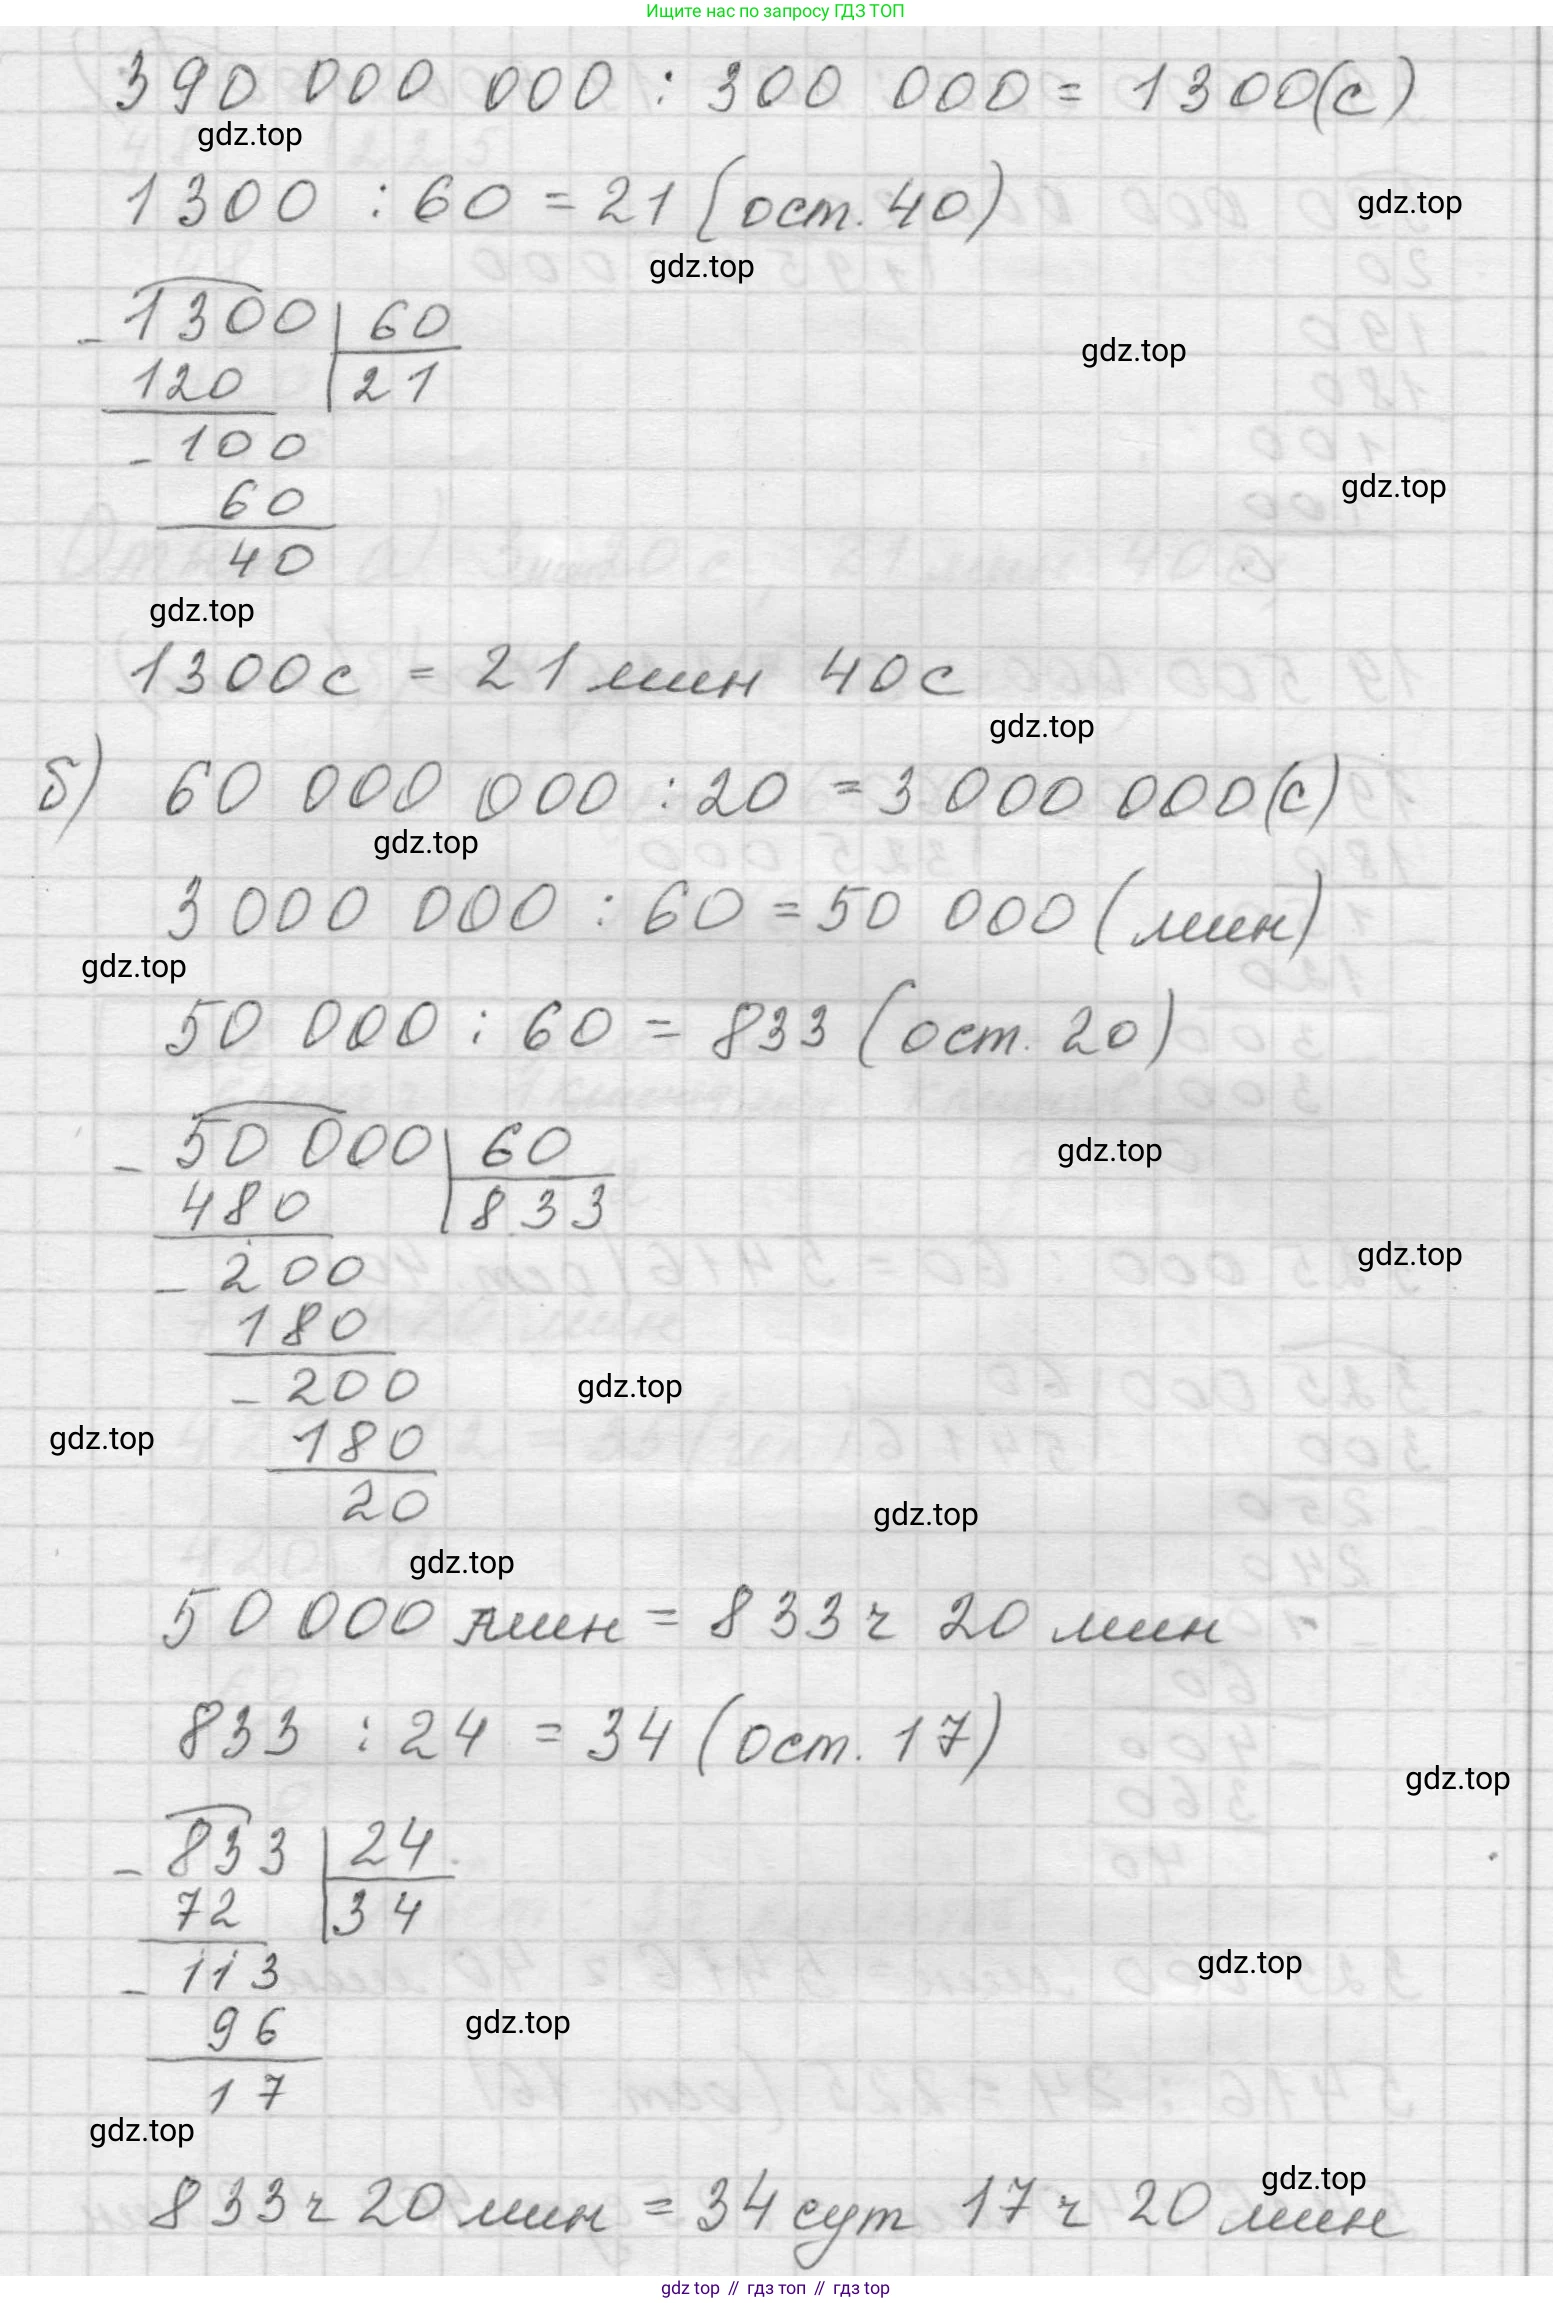 Ищите нас по запросу ГДЗ ТОП
390 000 000 : 300 000 = 1300(с)
gdz.top
1300 : 60 = 21 (ост. 40)
gdz.top
gdz.top
- 1300 | 60
gdz.top
120 | 21
- 100
gdz.top
60
40
gdz.top
1300с = 21 мин 40с
gdz.top
б) 60 000 000 : 20 = 3 000 000(с)
gdz.top
3 000 000 : 60 = 50 000 (мин)
gdz.top
50 000 : 60 = 833 (ост. 20)
- 50 000 | 60
gdz.top
480 | 833
gdz.top
- 200
180
- 200
gdz.top
gdz.top
180
20
gdz.top
gdz.top
50 000 мин = 833 ч 20 мин
833 : 24 = 34 (ост. 17)
gdz.top
- 833 | 24
72 | 34
- 113
gdz.top
96
gdz.top
17
gdz.top
gdz.top
833 ч 20 мин = 34 сут 17 ч 20 мин
gdz top // гдз топ // gdz top